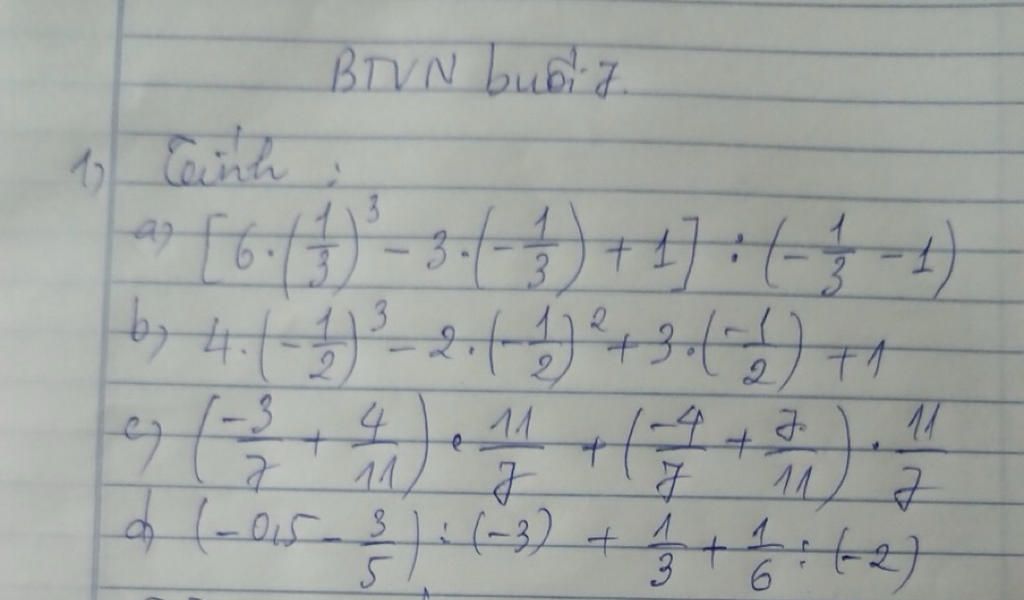 BTVN buổi 7.
1) Tính :
a) [6·(1/3)³ − 3·(−1/3) + 1] : (−1/3 − 1)
b) 4·(−1/2)³ − 2·(−1/2)² + 3·(−1/2) + 1
c) (−3/7 + 4/11) · 11/7 + (−4/7 + 7/11) · 11/7
d) (−0,5 − 3/5) : (−3) + 1/3 + 1/6 : (−2)